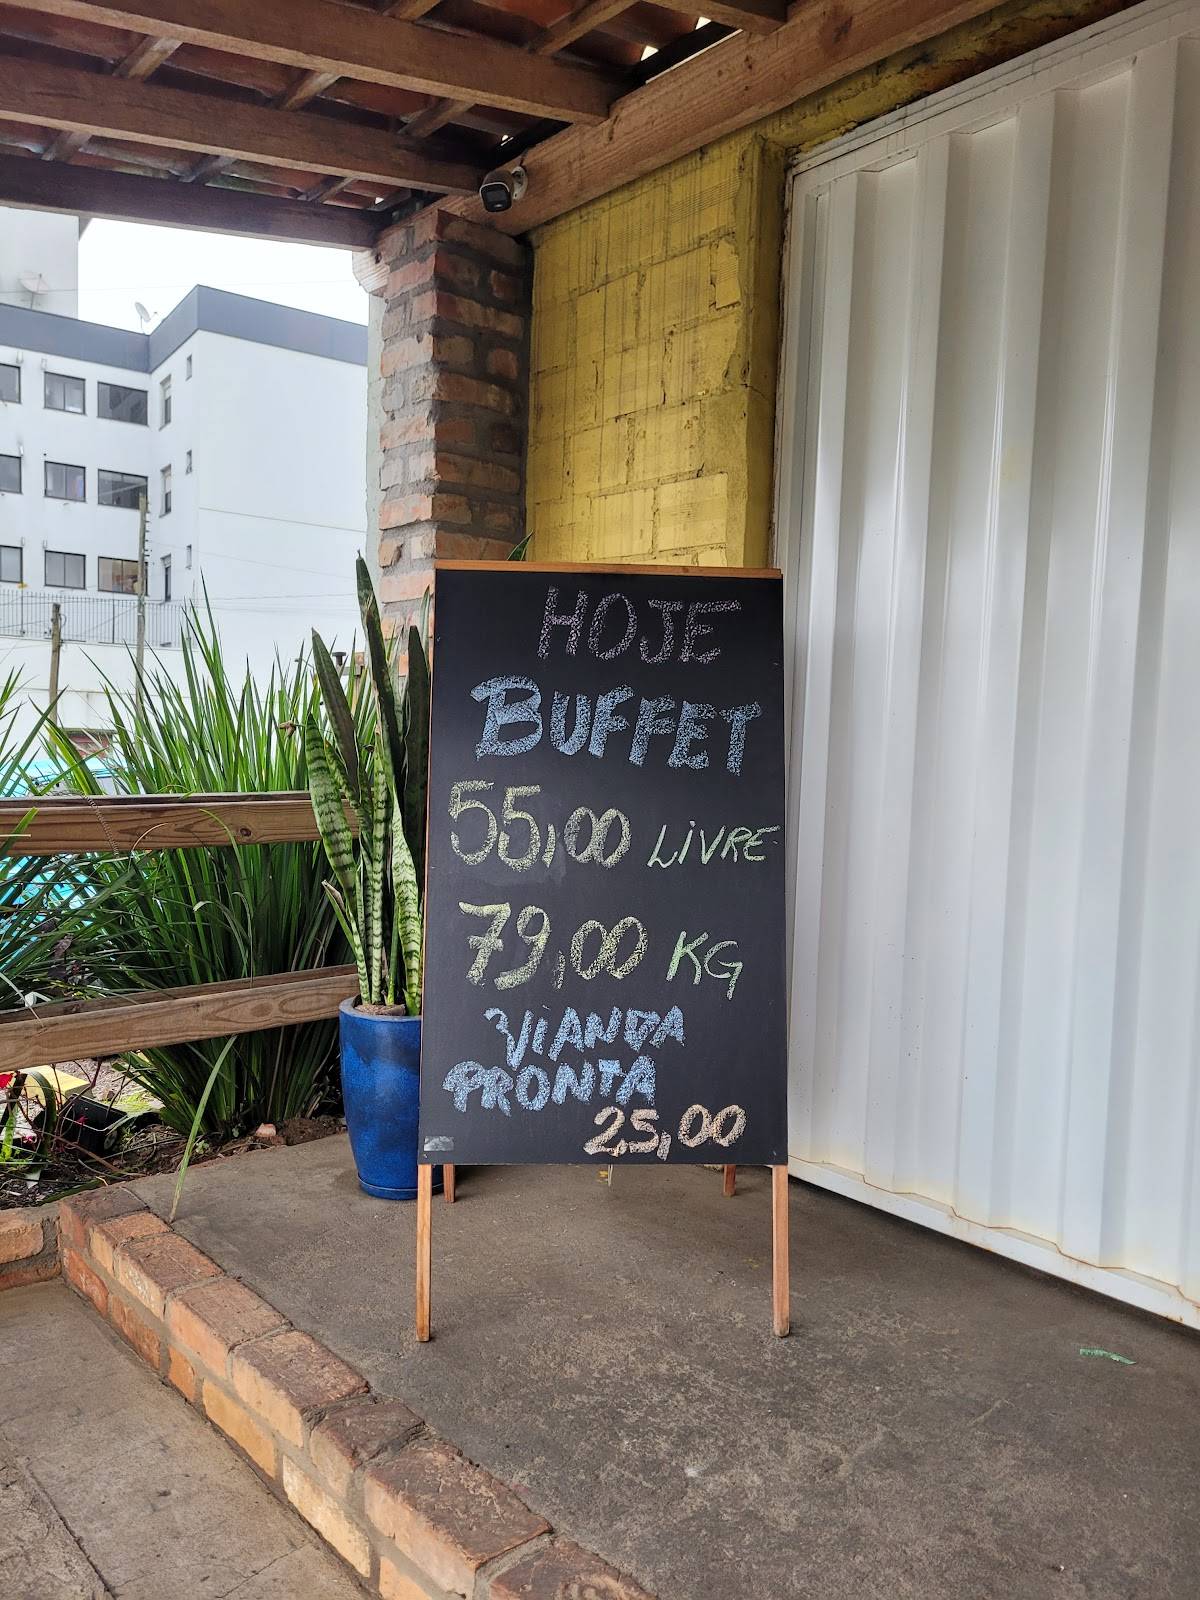 HOJE
BUFFET
55,00 LIVRE
79,00 KG
VIANDA
PRONTA
25,00